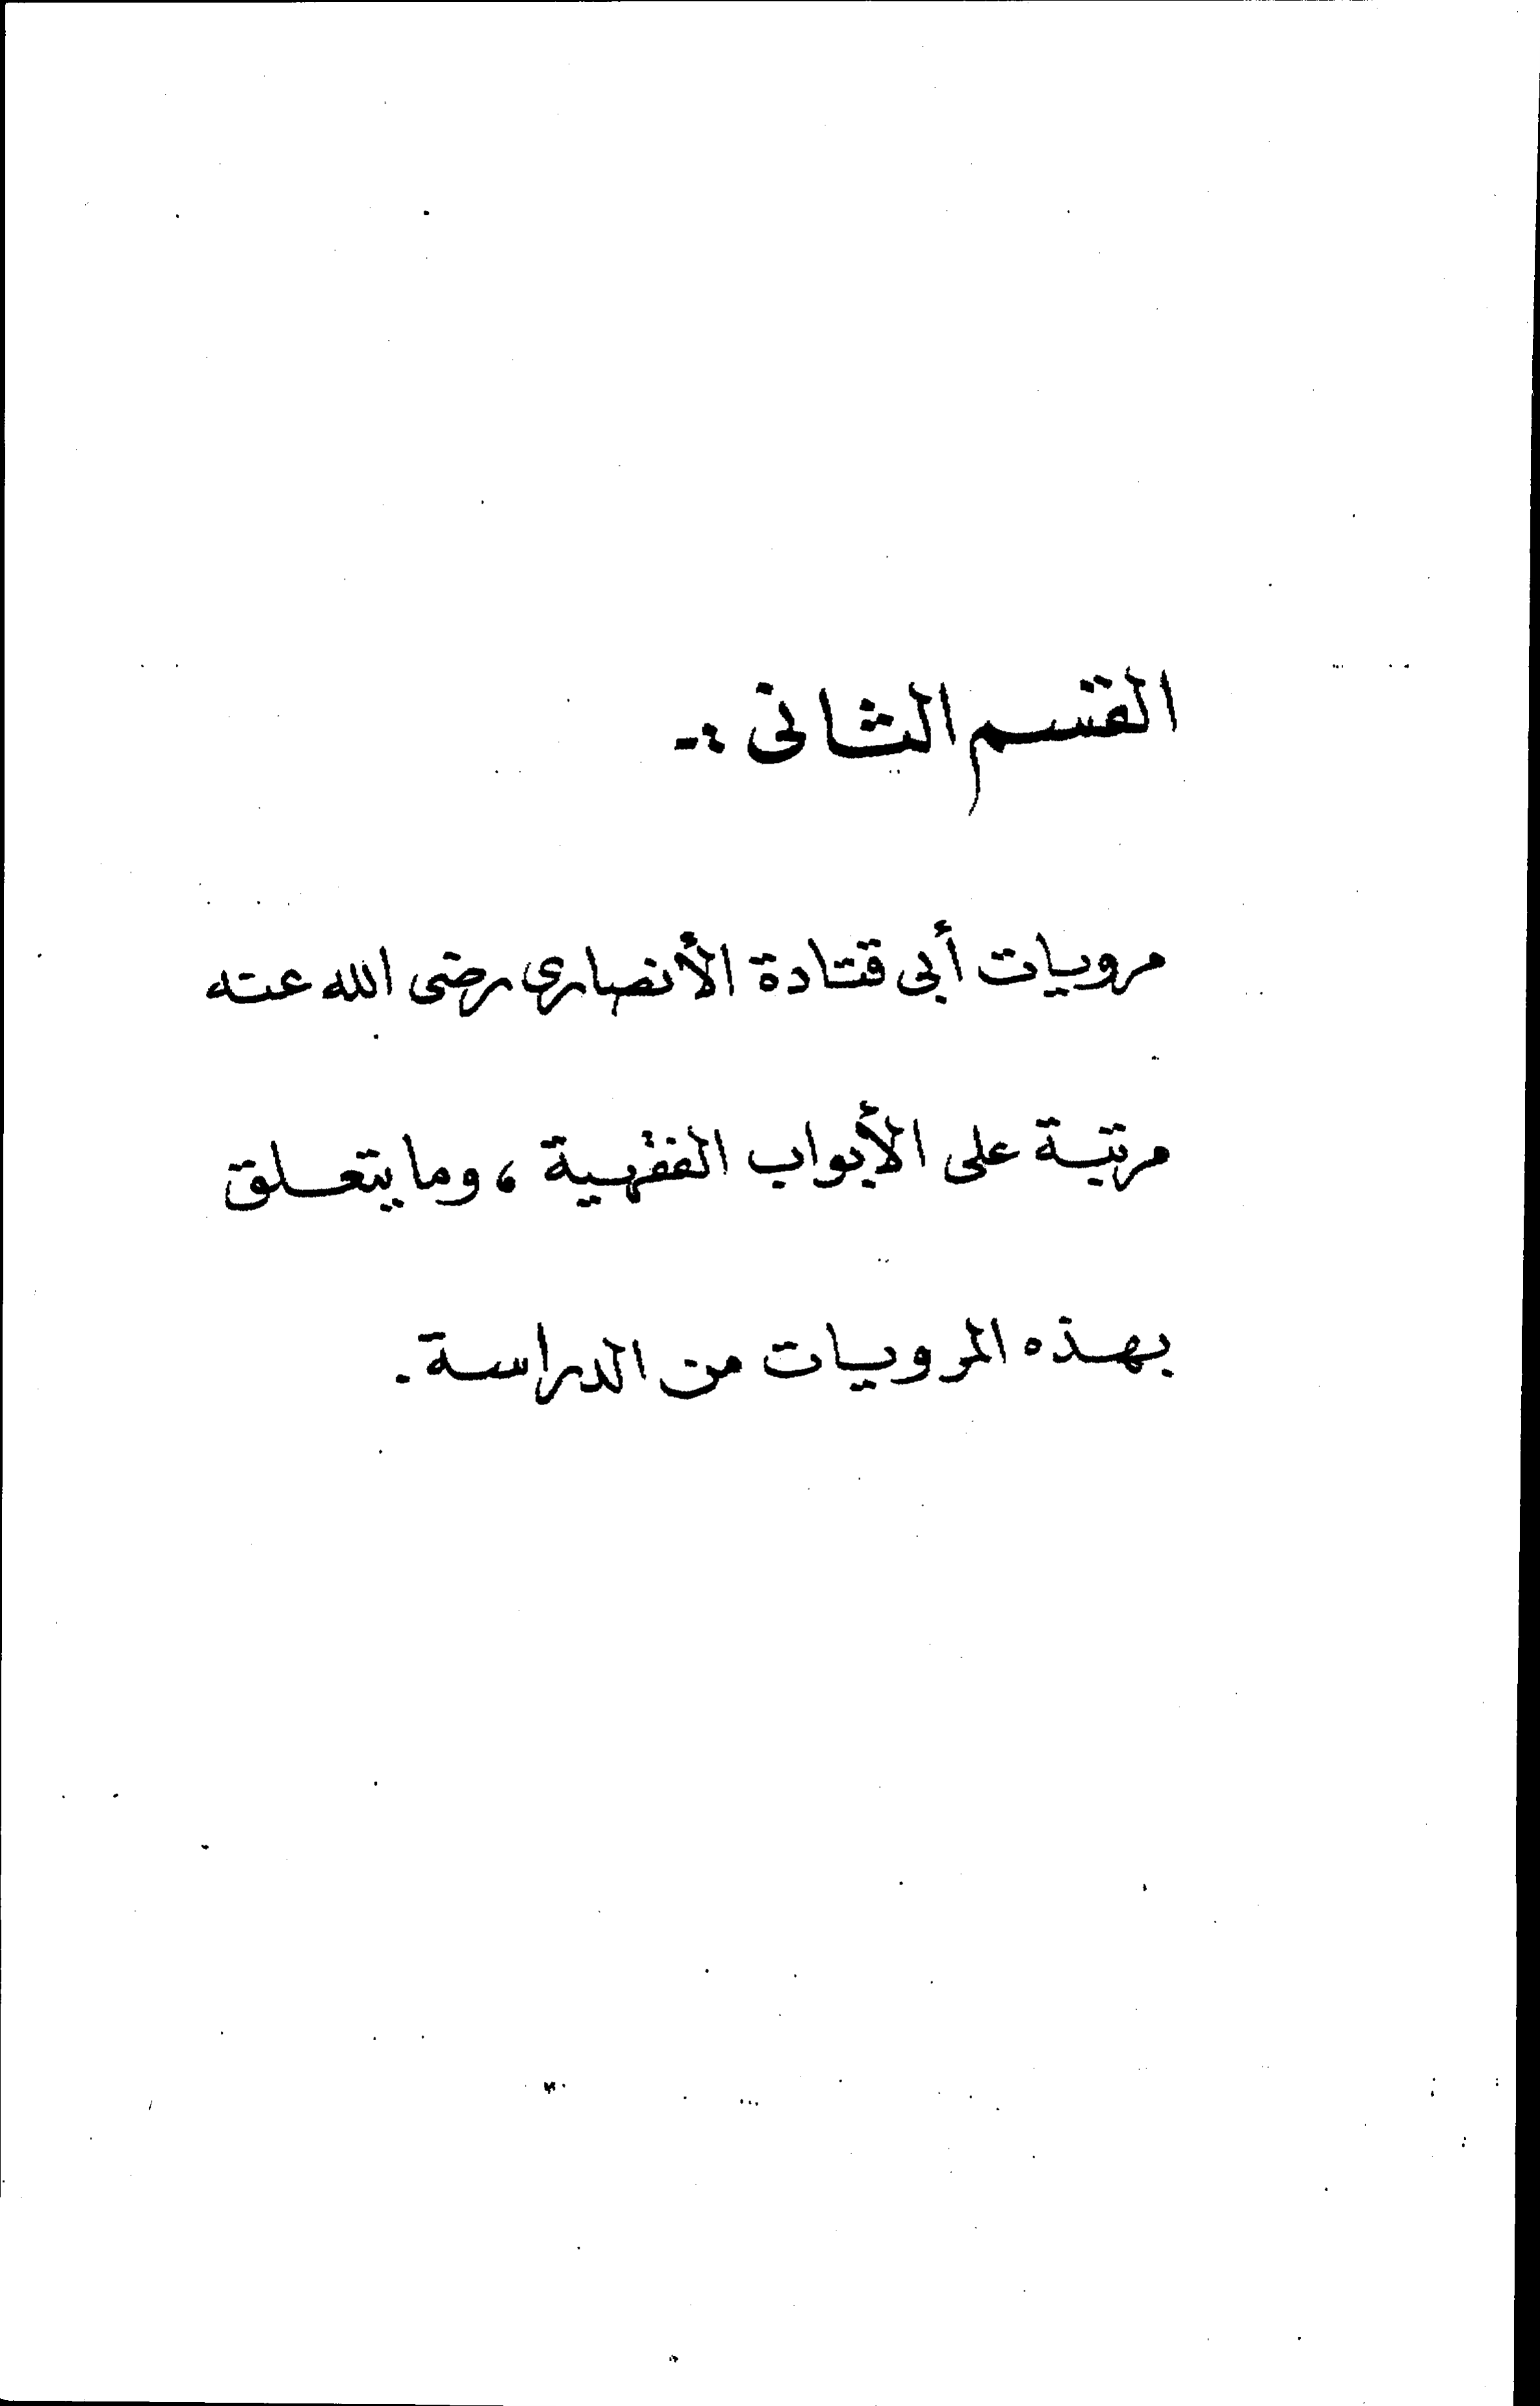 القسم الثانى :-
مرويات أبى قتادة الأنصارى رضى الله عنه
مرتبة على الأبواب الفقهية ، وما يتعلق
بهذه المرويات من الدراسة .